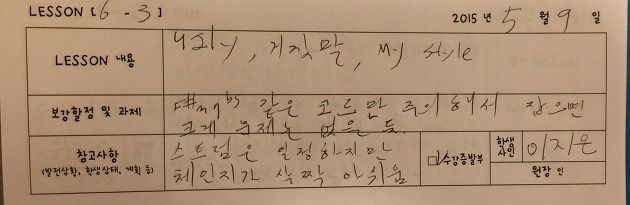 LESSON [6 - 3] 2015 년 5 월 9 일
LESSON 내용
너의, 거짓말, My style
보강할점 및 과제
D#m7b5 같은 코드만 주의해서 잡으면
크게 문제는 없을 듯.
참고사항
(발전상황, 학생상태, 계획 등)
스트럼은 일정하지만
체인지가 살짝 아쉬움
수강증발부
학생 사인 이지은
원장 인